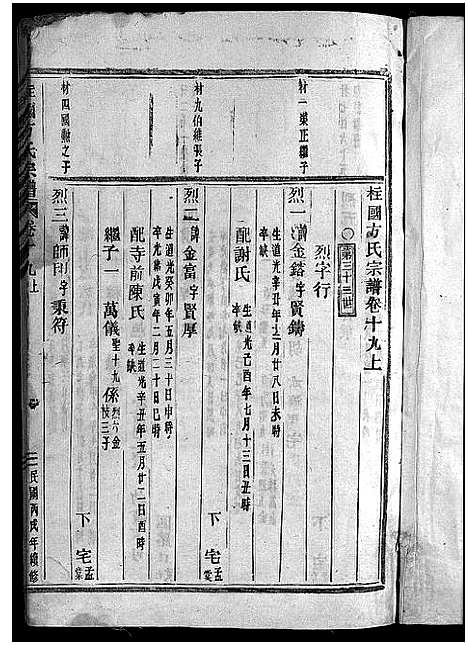 柱國方氏宗譜卷十九上
第三十三世
烈字行
材一榮正繼子
烈一諱金鎔字賢鑄
生道光辛丑年十二月廿八日未時
卒缺
配謝氏
生道光己酉年七月十三日丑時
卒缺
下宅孟
材九伯維張子
烈二諱金富字賢厚
生道光癸卯年五月三十日申時
卒光緒戊寅年二月二十日巳時
配寺前陳氏
生道光辛丑年五月廿二日酉時
卒缺
繼子一 萬儀聖十九係烈六金枝三子
下宅孟
材四國勳之子
烈三諱師印字秉符
下宅孟
柱國方氏宗譜 卷十九上
一
民國丙戌年續修